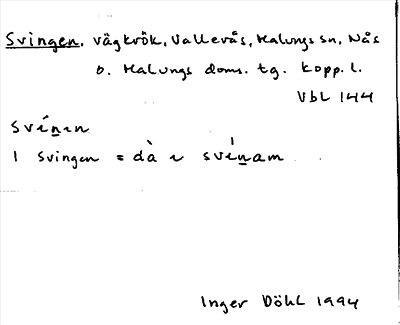 Svingen, vägkrök, Vallerås, Malungs sn, Nås
o. Malungs doms. tg. Kopp. l.
VbL 144
svínın
I svingen = dà ı svínam
Inger Döhl 1994